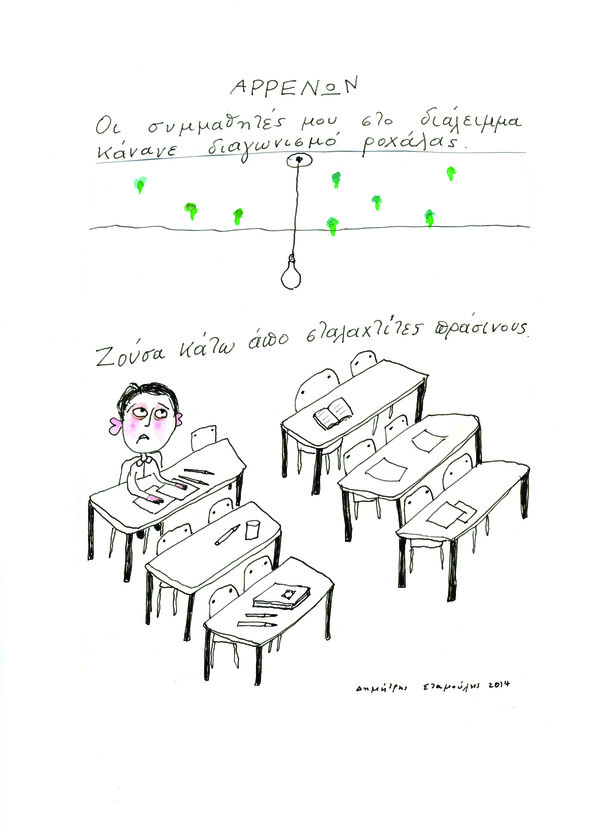 ΑΡΡΕΝΩΝ
Οι συμμαθητές μου στο διάλειμμα
κάνανε διαγωνισμό ροχάλας.
Ζούσα κάτω άπο σταλαχτίτες πράσινους.
Δημήτρης Σταμούλης 2014